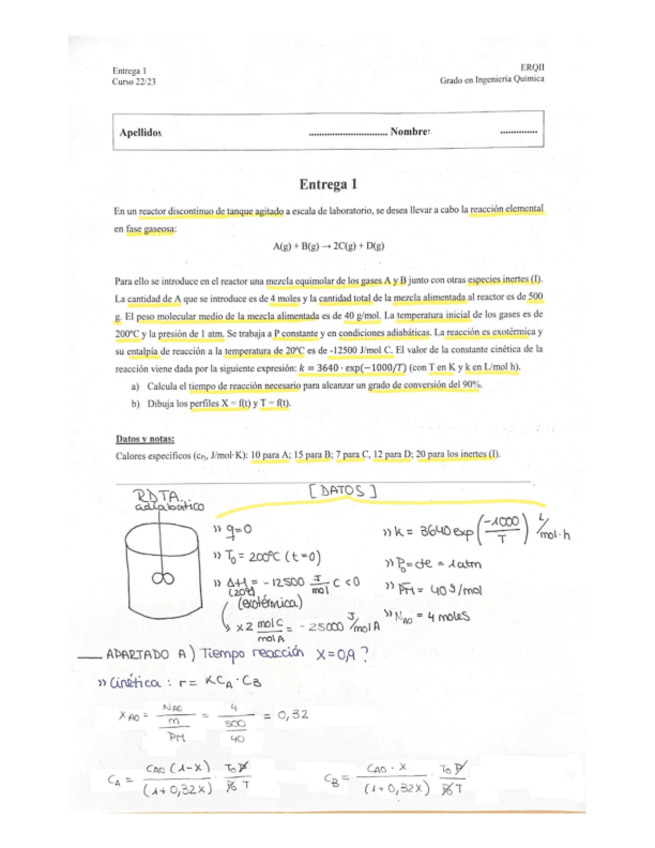 Entrega 1
Curso 22/23
ERQII
Grado en Ingeniería Química
Apellidos ............................... Nombre: ..............
Entrega 1
En un reactor discontinuo de tanque agitado a escala de laboratorio, se desea llevar a cabo la reacción elemental
en fase gaseosa:
A(g) + B(g) → 2C(g) + D(g)
Para ello se introduce en el reactor una mezcla equimolar de los gases A y B junto con otras especies inertes (I).
La cantidad de A que se introduce es de 4 moles y la cantidad total de la mezcla alimentada al reactor es de 500
g. El peso molecular medio de la mezcla alimentada es de 40 g/mol. La temperatura inicial de los gases es de
200ºC y la presión de 1 atm. Se trabaja a P constante y en condiciones adiabáticas. La reacción es exotérmica y
su entalpía de reacción a la temperatura de 20ºC es de -12500 J/mol C. El valor de la constante cinética de la
reacción viene dada por la siguiente expresión: k = 3640 · exp(−1000/T) (con T en K y k en L/mol h).
a) Calcula el tiempo de reacción necesario para alcanzar un grado de conversión del 90%.
b) Dibuja los perfiles X = f(t) y T = f(t).
Datos y notas:
Calores específicos (cp, J/mol·K): 10 para A; 15 para B; 7 para C, 12 para D; 20 para los inertes (I).
RDTA
adiabático
[DATOS]
» q=0
» T0 = 200ºC (t=0)
» ΔH = -12500 J/mol C <0
(20º)
(exotérmica)
↳ x2 mol C/mol A = -25000 J/mol A
» K = 3640 exp(-1000/T) L/mol·h
» P0=cte = 1atm
» PM = 40 g/mol
» NA0 = 4 moles
APARTADO A) Tiempo reacción X=0,9?
» Cinética : r = KCA·CB
XA0 = NA0/(m/PM) = 4/(500/40) = 0,32
CA = CA0 (1-X)/(1+0,32X) T0 P/P0 T
CB = CA0 · X/(1+0,32X) · T0 P/P0 T